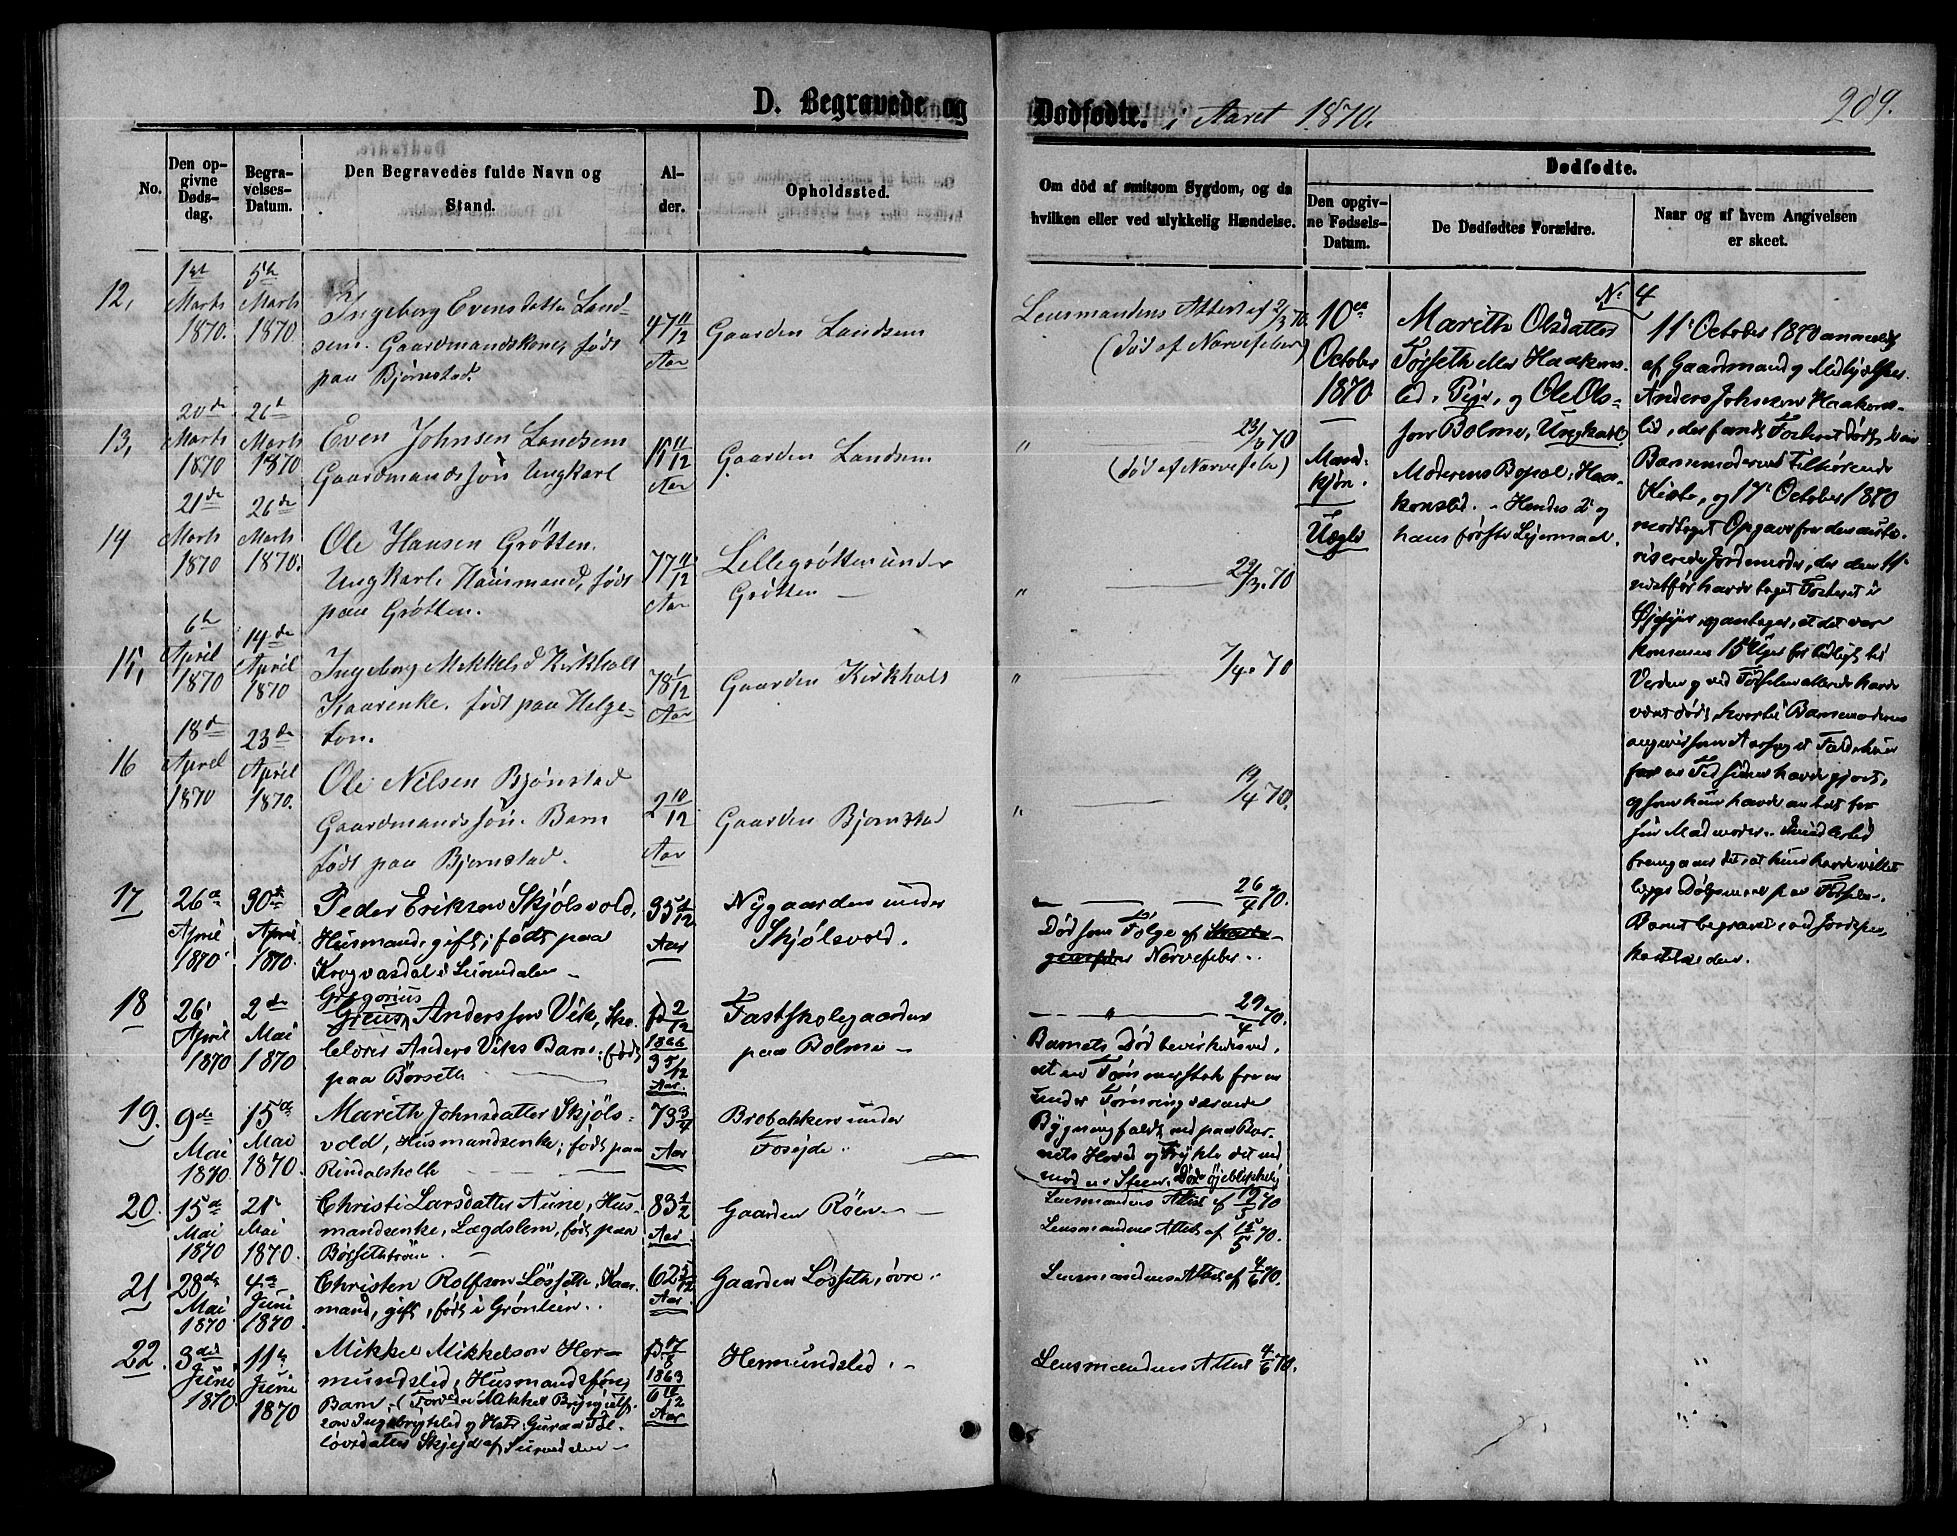 D. Begravede og
Dødfødte. i Aaret 1870.
209.
No.
Den opgivne Dødsdag.
Begravelses-Datum.
Den Begravedes fulde Navn og Stand.
Alder.
Opholdssted.
Om död af smitsom Sygdom, og da hvilken eller ved ulykkelig Hændelse.
Dødfødte.
Den opgivne Fødsels-Datum.
De Dødfødtes Forældre.
Naar og af hvem Angivelsen er skeet.
12,
Marts
1870.
5te
Marts
1870.
Ingeborg Evensdatter Land-
sem. Gaardmandskone, født
paa Bjørnstad.
47 11/12
Aar
Gaarden Landsem
Lensmandens Attest af 2/3 70.
(død af Nervefeber)
13,
20de
Marts
1870
26de
Marts
1870
Even Johnsen Landsem
Gaardmandssøn Ungkarl
Aar
Gaarden Landsem
" 23/3 70
(død af Nervefeber)
14
21de
Marts
1870
26de
Marts
1870.
Ole Hansen Grøtten.
Ungkarl Huusmand, født
paa Grøtten.
77 11/12
Aar
Lillegrøtten under
Grøtten —
"
15,
6te
April
1870
14de
April
1870
Ingeborg Mikkelsd Kirkholt
Kaarenke. født paa Helge-
ton.
78 1/12
Aar
Gaarden Kirkholt
" 7/4 70
16
18de
April
1870
23de
April
1870.
Ole Nilsen Bjørnstad
Gaardmandssøn. Barn
født paa Bjørnstad.
2 10/12
Aar
Gaarden Bjørnstad
" 19/4 70.
17
26de
April
1870.
30te
April
1870.
Peder Eriksen Skjølsvold,
Husmand, gift; født paa
Krogvasdal i Surendalen —
35 1/12
Aar
Nygaarden under
Skjølsvold.
26/4 70.
Død som Følge af
Nervefeber..
18
26
April
1870
2de
Mai
1870
Gregorius
Anderssøn Vik, Sko-
lelærer Anders Viks Barn; født
paa Börseth
1866
3 5/12
Aar.
Fastskolegaarden
paa Bolme —
29/4 70.
Barnets Død bevirkedes ved,
at en Tømmerstok fra en
under Tømring værende
Bygning faldt ned paa Bar-
nets Hoved og trykte det ned
mod en Steen. Døde øjeblikkelig
19.
9de
Mai
1870
15de
Mai
1870.
Marith Johnsdatter Skjøls-
vold, Husmandsenke; født paa
Rindalsholte
73 3/4
Aar
Brobakken under
Fosejde.
Lensmandens Attest af
20.
15de
Mai
1870
21
Mai
1870.
Christi Larsdatter Aune, Hus-
mandsenke, Lægdslem, født paa
Börsethtrøen
83 1/2
Aar
Gaarden Röen —
Lensmandens Attest af 15/5 70.
21
28de
Mai
1870
4de
Juni
1870
Christen Rolfsen Løsseth, Kaar-
mand, gift, født i Grønlien..
62 5/12
Aar.
Gaarden Løsseth, øvre..
Lensmandens Attest af 4/6 70.
22.
3die
Juni
1870
11te
Juni
1870
Mikkel Mikkelsen Her-
mundslid, Husmandssøn,
Barn,
1863
6
Aar
Hermundslid. —
Lensmandens Attest 4/6 70.
No 4
10de
October
1870
—
Mand-
kjøn.
Uægte
Marith Olsdatter
Tørseth eller Haakens-
lid, Pige, og Ole Ols-
søn Bolme, Ungkarl.
Moderens Bopæl: Haa-
konslid. — Hendes 2 og
hans første Lejermaal.
11 October 1870 anmeldt
af Gaardmand og Medhjælper
Anders Johnsen Haakons-
lid, der fandt Fosteret dødt i en
Barnemoderen tilhørende
Kiste, og 17 October 1870
modtaget Opgave fra den auto-
riserede Jordemoder, der den 11
havde taget Fosteret i
Øjesyn, og antager, at det var
kommen 15 Uger for tidligt til
Verden og ved Fødselen allerede havde
været dødt, hvortil Barnemoderen
angivet som Aarsag et Fald hun
for en Tid siden havde gjort,
og som hun havde
sin Madmoder.. Imidlertid
fremgaaer det, at hun havde villet
lægge Dølgsmaal paa Fødselen.
Barnet begravet, ved Jordpaa-